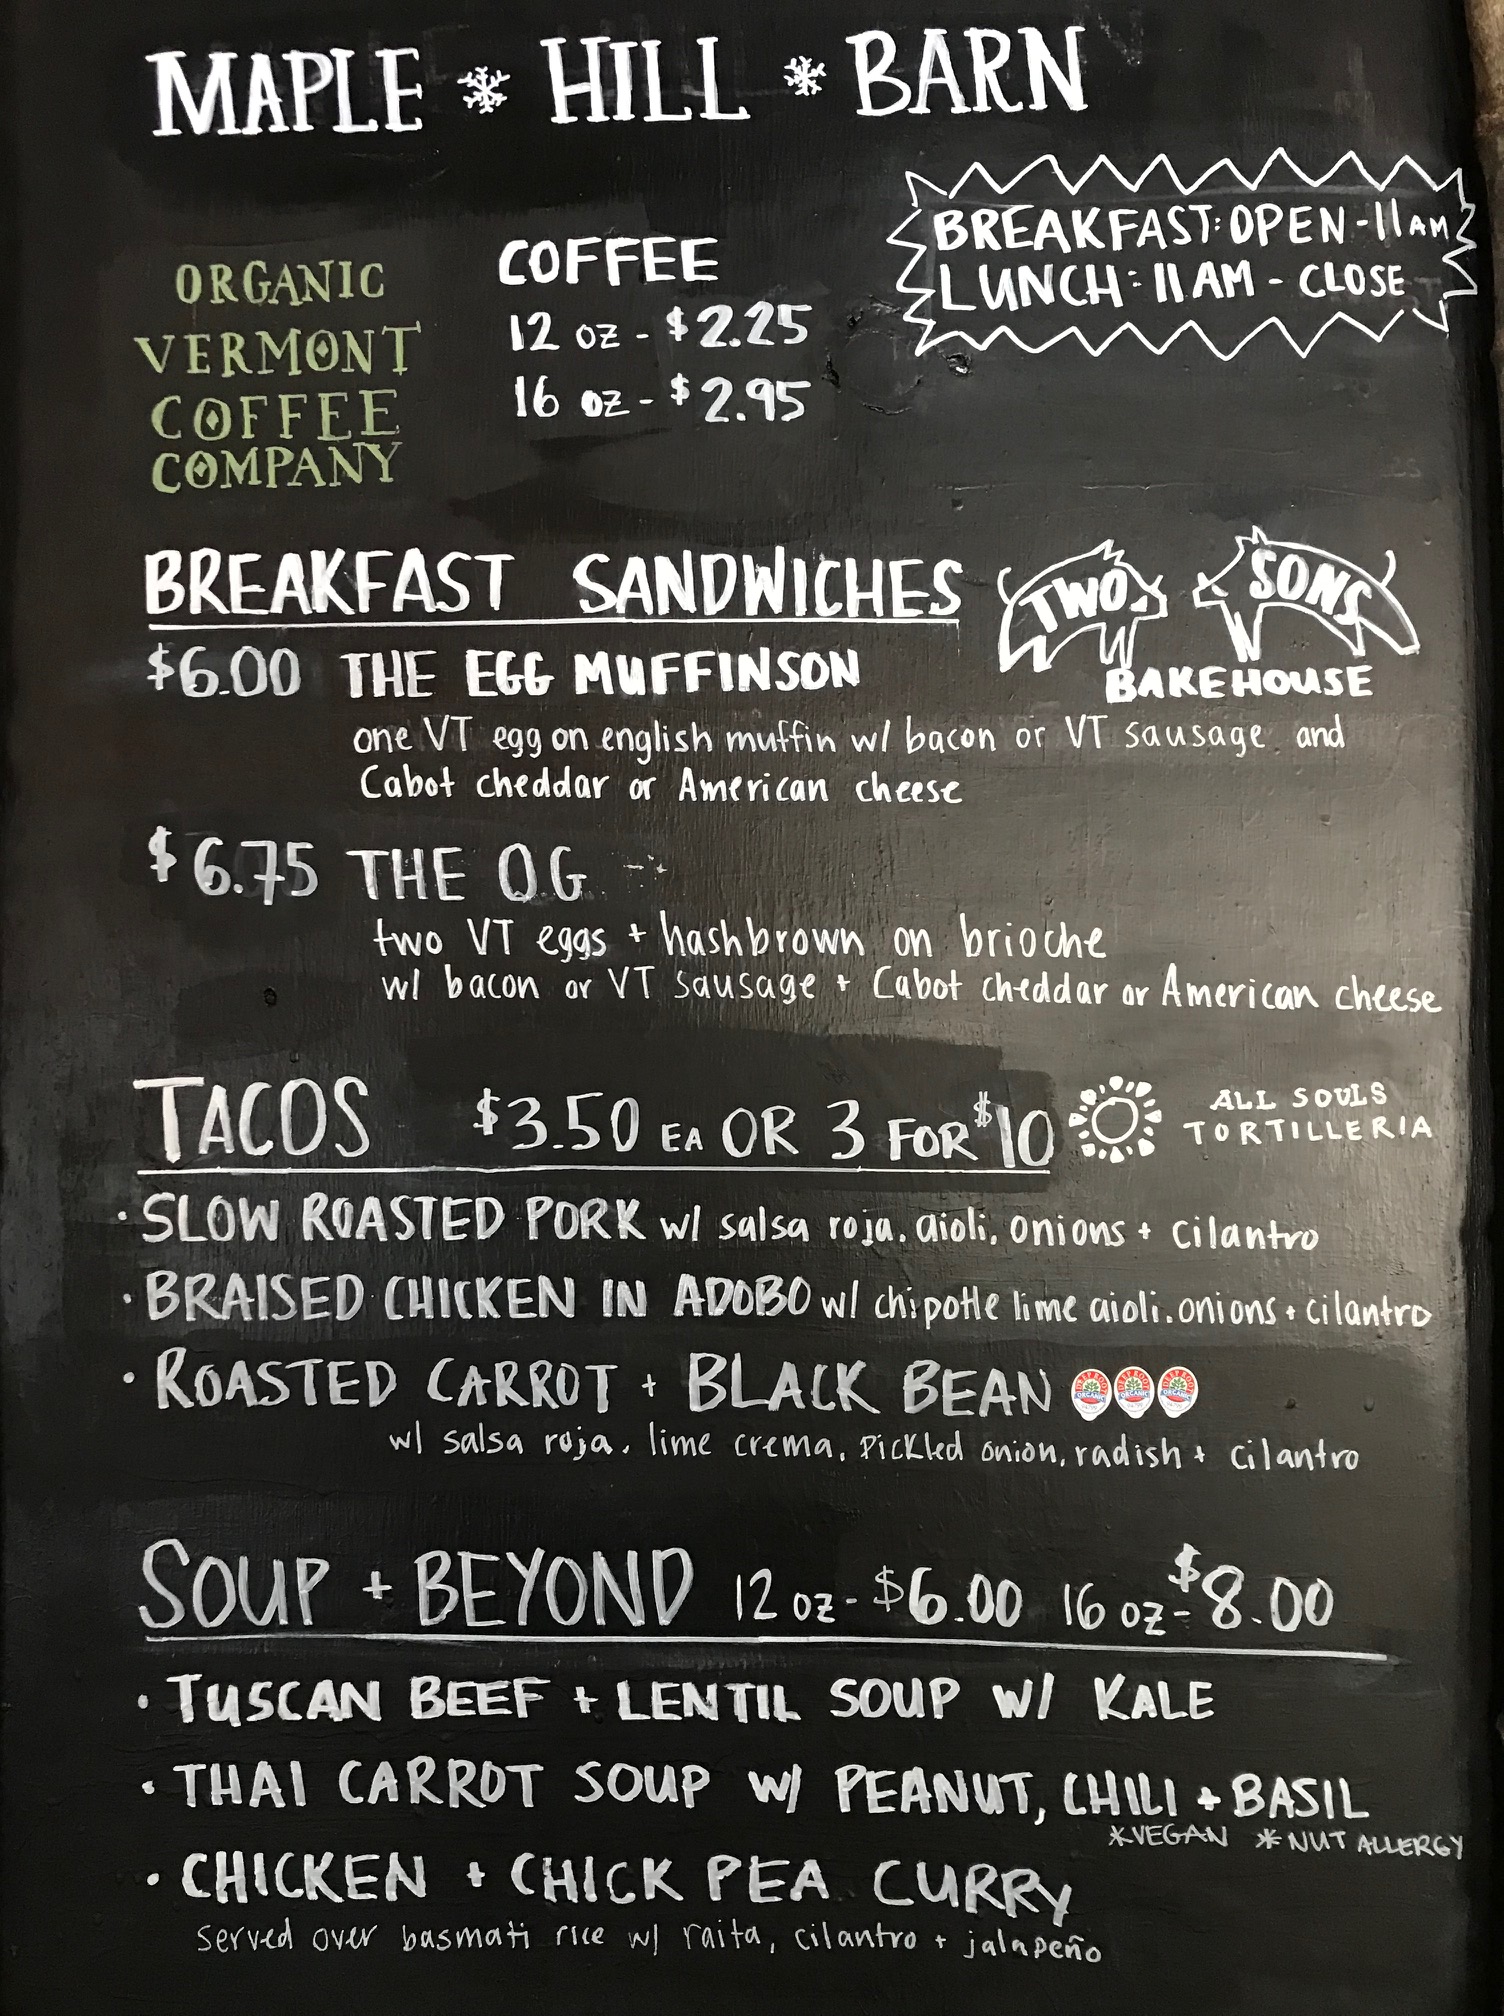 MAPLE * HILL * BARN
BREAKFAST: OPEN - 11AM
LUNCH: 11AM - CLOSE
ORGANIC
VERMONT
COFFEE
COMPANY
COFFEE
12 oz - $2.25
16 oz - $2.95
BREAKFAST SANDWICHES
TWO SONS
BAKEHOUSE
$6.00 THE EGG MUFFINSON
one VT egg on english muffin w/ bacon or VT sausage and
Cabot cheddar or American cheese
$6.75 THE OG
two VT eggs + hashbrown on brioche
w/ bacon or VT sausage + Cabot cheddar or American cheese
TACOS $3.50 EA OR 3 FOR $10
ALL SOULS
TORTILLERIA
· SLOW ROASTED PORK w/ salsa roja, aioli, onions + cilantro
· BRAISED CHICKEN IN ADOBO w/ chipotle lime aioli, onions + cilantro
· ROASTED CARROT + BLACK BEAN
w/ salsa roja, lime crema, pickled onion, radish + cilantro
SOUP + BEYOND 12 oz - $6.00 16 oz - $8.00
· TUSCAN BEEF + LENTIL SOUP W/ KALE
· THAI CARROT SOUP W/ PEANUT, CHILI + BASIL
*VEGAN *NUT ALLERGY
· CHICKEN + CHICK PEA CURRY
served over basmati rice w/ raita, cilantro + jalapeño